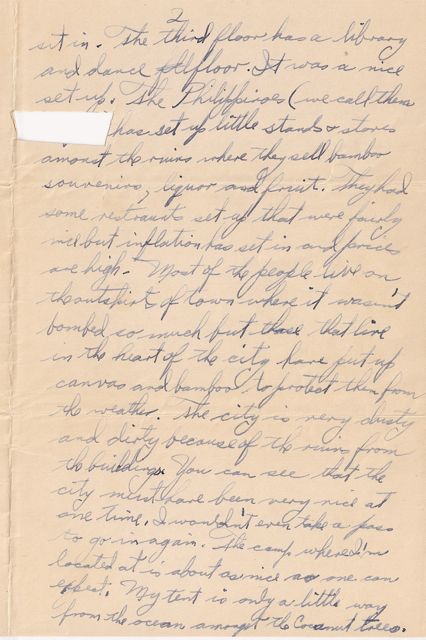 2
sit in. The third floor has a library
and dance floor. It was a nice
set up. The Philippinoes (we call them
has set up little stands & stores
amonst the ruins where they sell bamboo
souvenirs, liquor and fruit. They had
some restraunts set up that were fairly
nice but inflation has set in and prices
are high. Most of the people live on
the outskirts of town where it wasn't
bombed so much but those that live
in the heart of the city have put up
canvas and bamboo to protect them from
the weather. The city is very dusty
and dirty because of the ruins from
the buildings. You can see that the
city must have been very nice at
one time. I wouldn't even take a pass
to go in again. The camp where I'm
located at is about as nice as one can
expect. My tent is only a little way
from the ocean amongst the Cocanut trees.